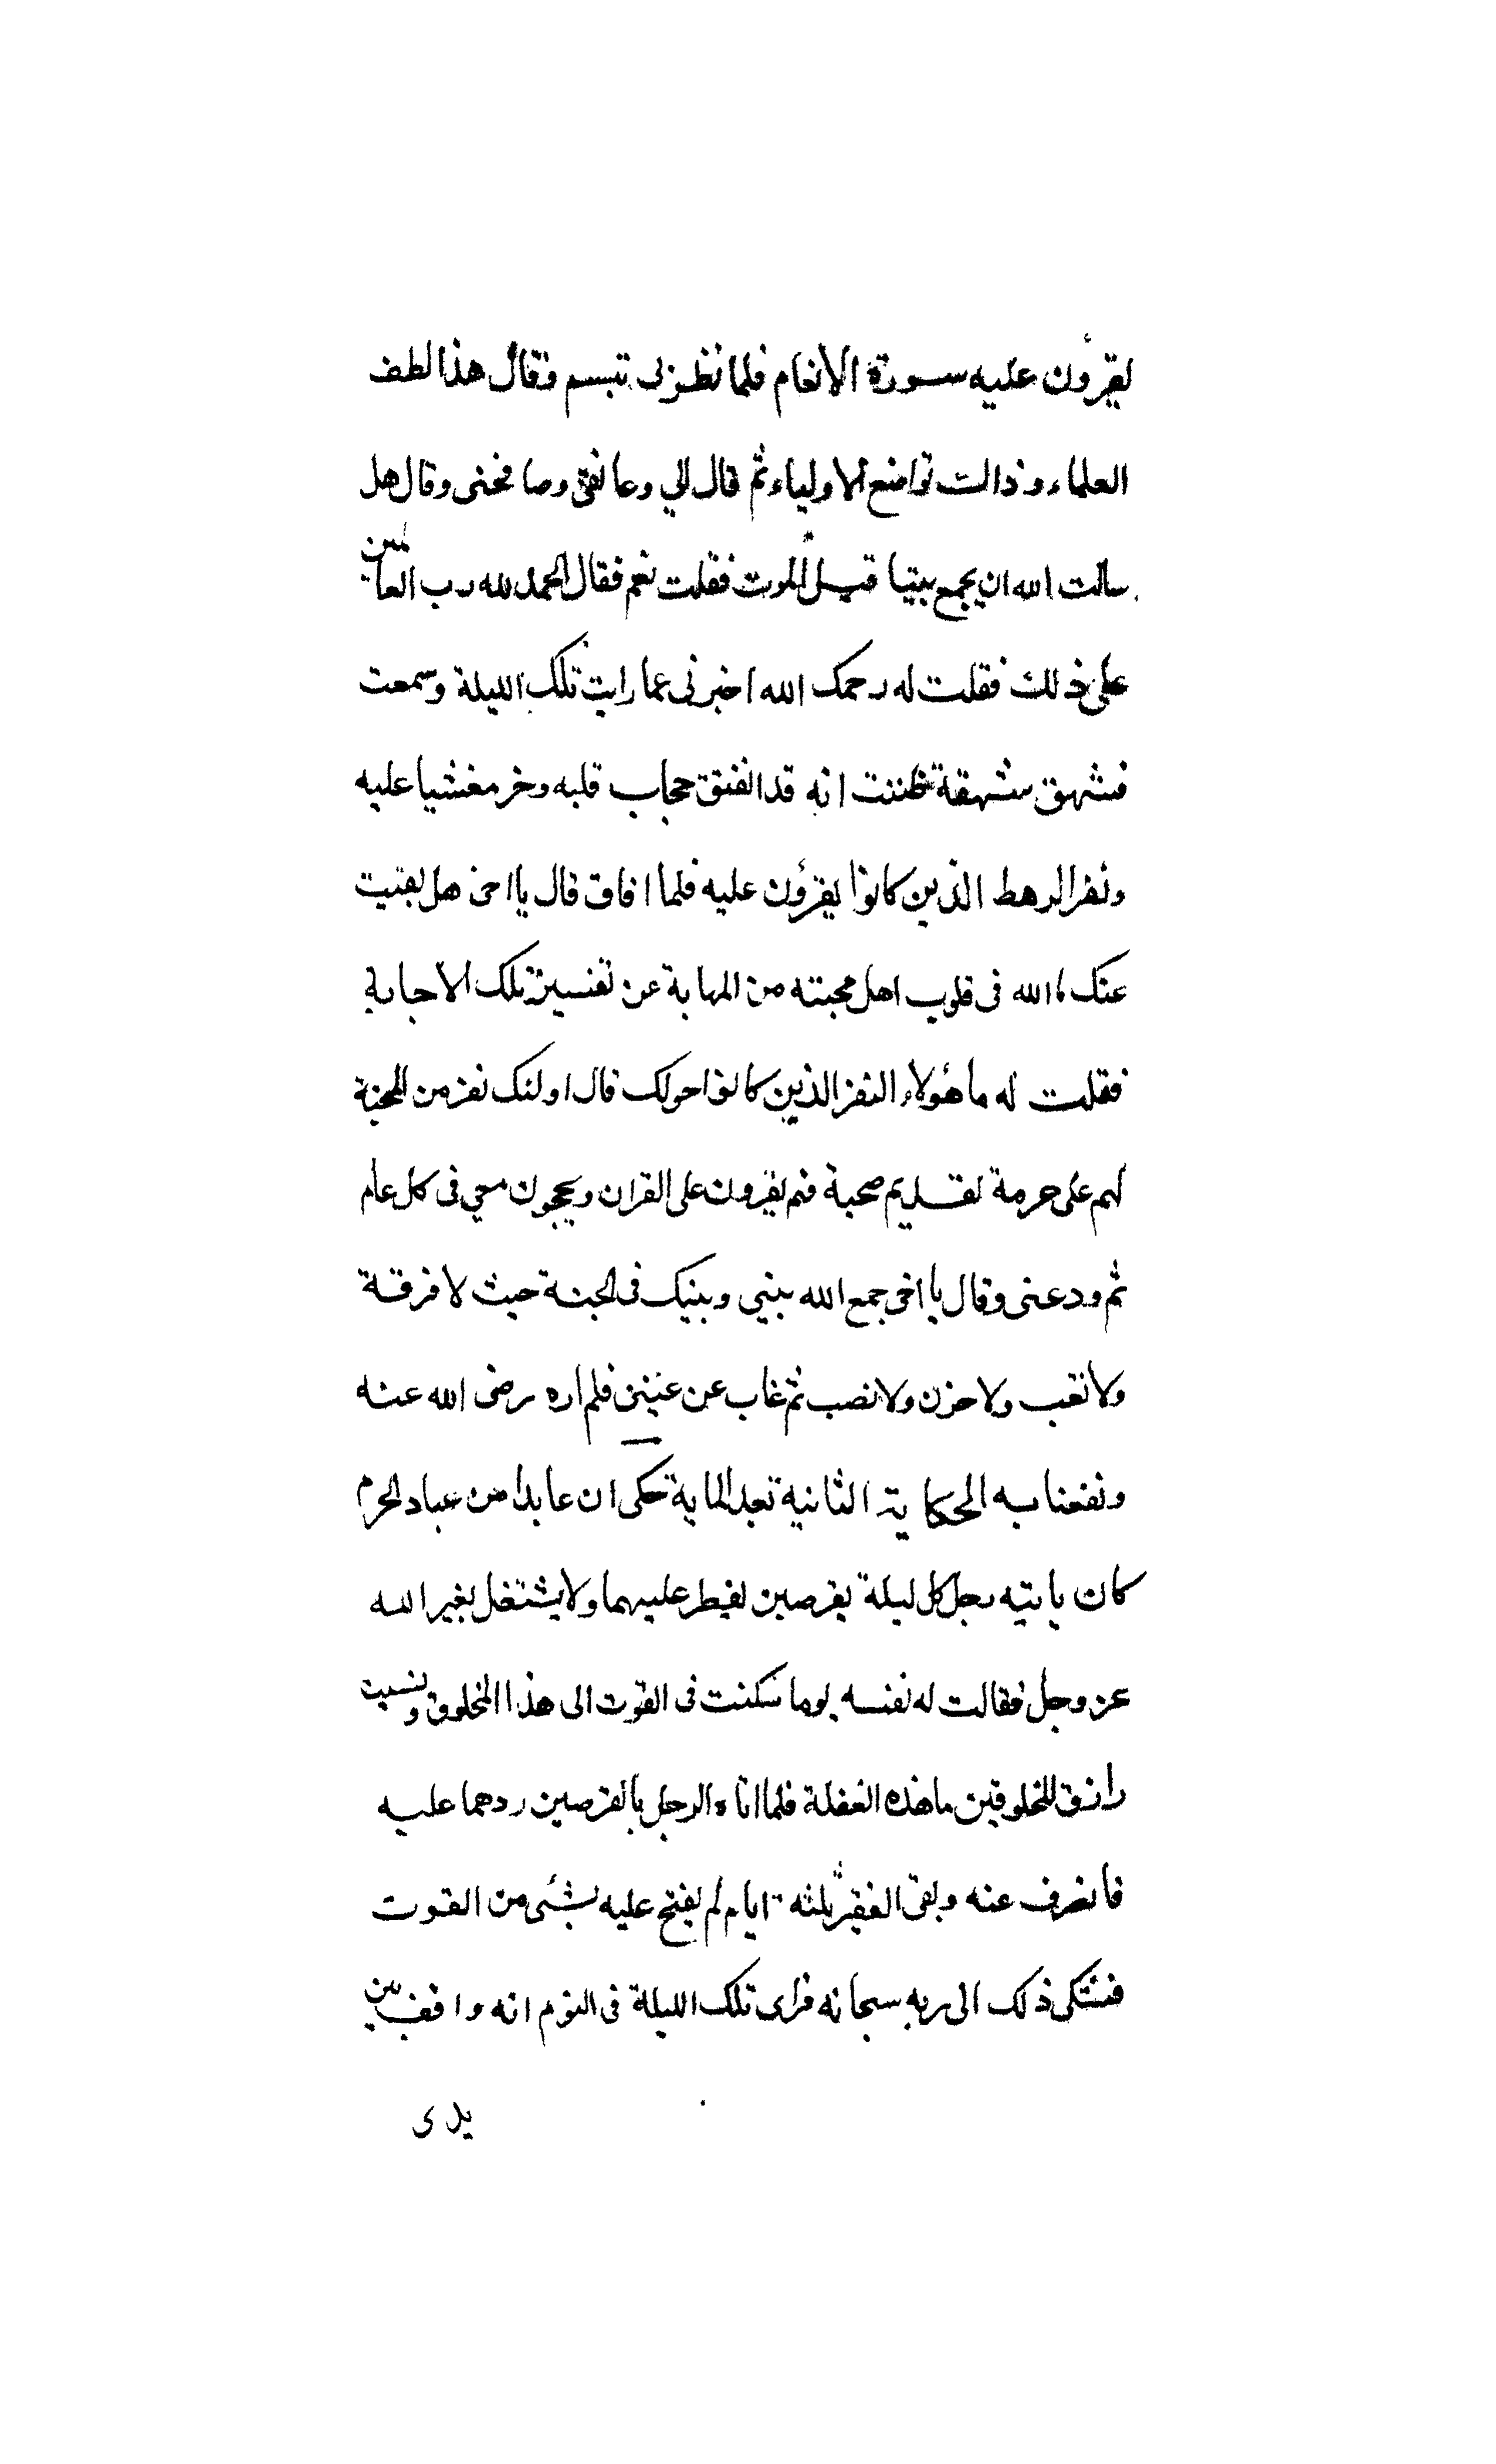 يقرؤن عليه سورة الانعام فلما نظر لى تبسم وقال هذا لطف
العلماء وذالك تواضع الاولياء ثم قال الي وعانقنى وصافحنى وقال هل
سالت الله ان يجمع بيتا قبل الموت فقلت نعم فقال الحمد لله رب العالمين
على ذلك فقلت له رحمك الله اخبرنى عما رايت تلك الليلة وسمعت
فشهق شهقة ظننت انه قد انفتق حجاب قلبه وخر مغشيا عليه
ونفر الرهط الذين كانوا يقرؤن عليه فلما افاق قال يا اخى هل بقيت
عنك ما الله فى قلوب اهل محبته من المهابة عن تفسير تلك الاجابة
فقلت له ما هؤلاء النفر الذين كانوا حولك قال اولئك نفر من الجنة
لهم على حرمة لقديم صحبة فهم يقرون على القران ويحجون معي فى كل عام
ثم ودعنى وقال يا اخى جمع الله بينى وبينك فى الجنة حيث لا فرقة
ولا تعب ولا حزن ولا نصب ثم غاب عن عينى فلم اره رضى الله عنه
ونفعنا به الحكاية الثانية بعد الماية حكى ان عابدا من عباد الحرم
كان ياتيه رجل كل ليلة بقرصين لفيطر عليهما ولا يشتغل بغير الله
عز وجل فقالت له نفسه يوما سكنت فى القوت الى هذا المخلوق ونسيت
رازق المخلوقين ما هذه الغفلة فلما اتاه الرجل بالقرصين ردهما عليه
فانصرف عنه وبقى الفقير ثلثه ايام لم يفتح عليه بشئى من القوت
فشكى ذلك الى ربه سبحانه فراى تلك الليلة فى النوم انه واقف بين
يدى